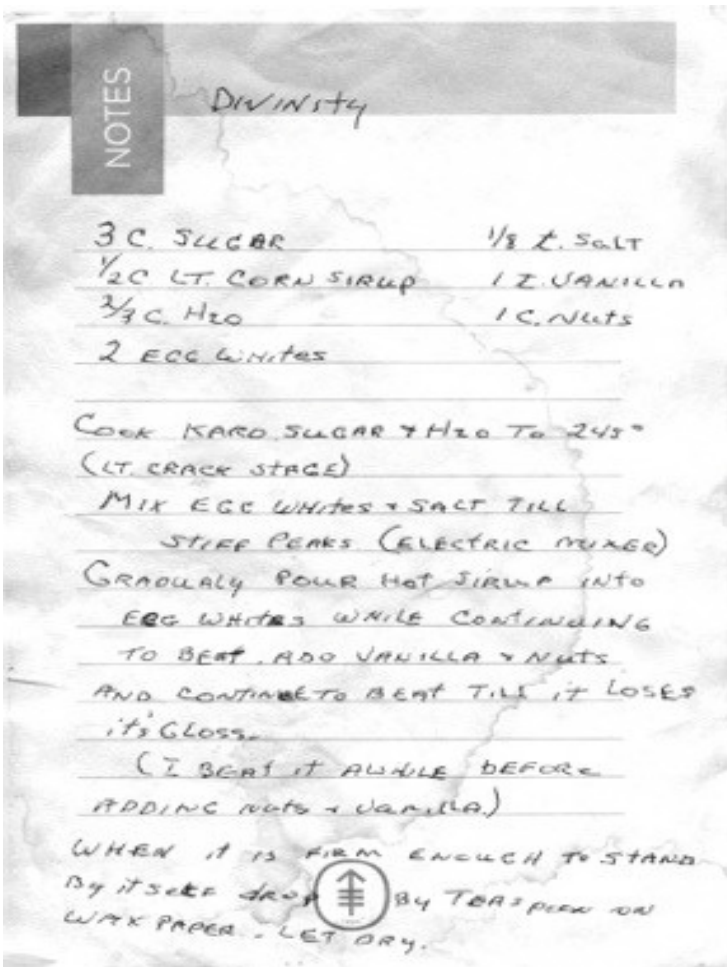 NOTES
DIVINIty
3 C. SUGAR 1/8 t. SaLT
1/2 C LT. CORN SIRUP 1 t. VANILLA
2/3 C. H2O 1 C. NUts
2 EGG WHItes
COOK KARO SUGAR & H2O TO 245°
(LT. CRACK STAGE)
MIX EGG WHItes & SALT TILL
STIFF PEAKS (ELECTRIC MIXER)
GRADUALY POUR Hot SIRUP INTO
EGG WHITES WHILE CONTINUING
TO BEAT. ADD VANILLA & NUTS
AND CONTINUE TO BEAT TILL it LOSES
it's GLOSS.
(I BEAT it AWHILE BEFORE
ADDING NUts & VanILLA.)
WHEN it IS FIRM ENOUGH TO STAND
By itSELF drop By TEASPOON ON
WAX PAPER. LET DRY.